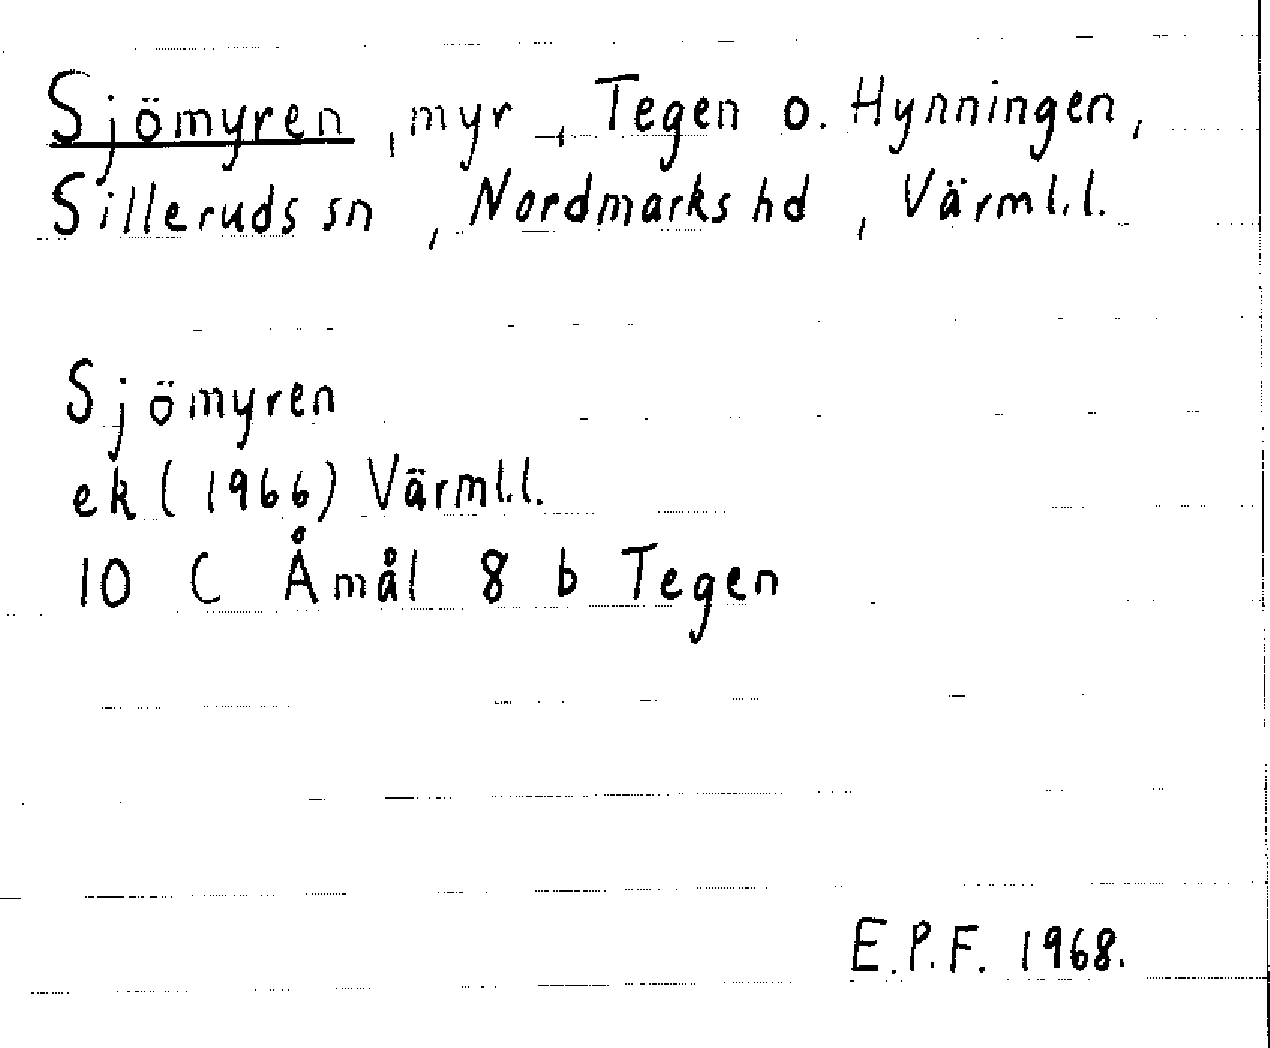 Sjömyren, myr, Tegen o. Hynningen,
Silleruds sn, Nordmarks hd, Värml.l.
Sjömyren
ek (1966) Värml.l.
10 C Åmål 8 b Tegen
E.P.F. 1968.